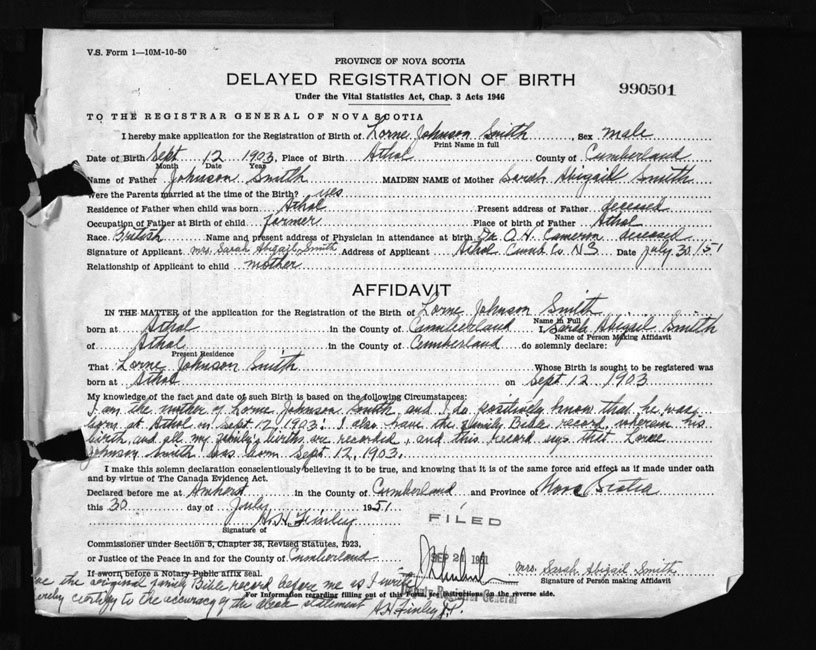 V.S. Form 1—10M-10-50
PROVINCE OF NOVA SCOTIA
DELAYED REGISTRATION OF BIRTH
990501
Under the Vital Statistics Act, Chap. 3 Acts 1946
TO THE REGISTRAR GENERAL OF NOVA SCOTIA
I hereby make application for the Registration of Birth of Lorne Johnson Smith Sex male
Print Name in full
Date of Birth Sept 12 1903 Place of Birth Athol County of Cumberland
Month Date Year
Name of Father Johnson Smith MAIDEN NAME of Mother Sarah Abigail Smith
Were the Parents married at the time of the Birth? yes
Residence of Father when child was born Athol Present address of Father deceased
Occupation of Father at Birth of child Farmer Place of birth of Father Athol
Race British Name and present address of Physician in attendance at birth Dr. A. H. Cameron deceased
Signature of Applicant Mrs. Sarah Abigail Smith Address of Applicant Athol Cumb Co. NS Date July 30/51
Relationship of Applicant to child mother
AFFIDAVIT
IN THE MATTER of the application for the Registration of the Birth of Lorne Johnson Smith
Name in Full
born at Athol in the County of Cumberland I, Sarah Abigail Smith
Name of Person Making Affidavit
of Athol in the County of Cumberland do solemnly declare:
Present Residence
That Lorne Johnson Smith Whose Birth is sought to be registered was
born at Athol on Sept 12 1903
My knowledge of the fact and date of such Birth is based on the following Circumstances:
I am the mother of Lorne Johnson Smith, and I do positively know that he was
born at Athol in Sept. 12, 1903. I also have the family Bible record, wherein his
birth, and all my family's births are recorded, and this record says that Lorne
Johnson Smith was born Sept. 12, 1903.
I make this solemn declaration conscientiously believing it to be true, and knowing that it is of the same force and effect as if made under oath
and by virtue of The Canada Evidence Act.
Declared before me at Amherst in the County of Cumberland and Province of Nova Scotia
this 30 day of July 1951
A. H. Finley
Signature of
FILED
Commissioner under Section 8, Chapter 38, Revised Statutes, 1923,
or Justice of the Peace in and for the County of Cumberland
SEP 1951
Mrs. Sarah Abigail Smith
If sworn before a Notary Public affix seal.
Signature of Person making Affidavit
the original family Bible record before me as I write
Registrar General
For Information regarding filling out of this Form, see instructions on the reverse side.
certify to the accuracy of the above statement A H Finley J.P.